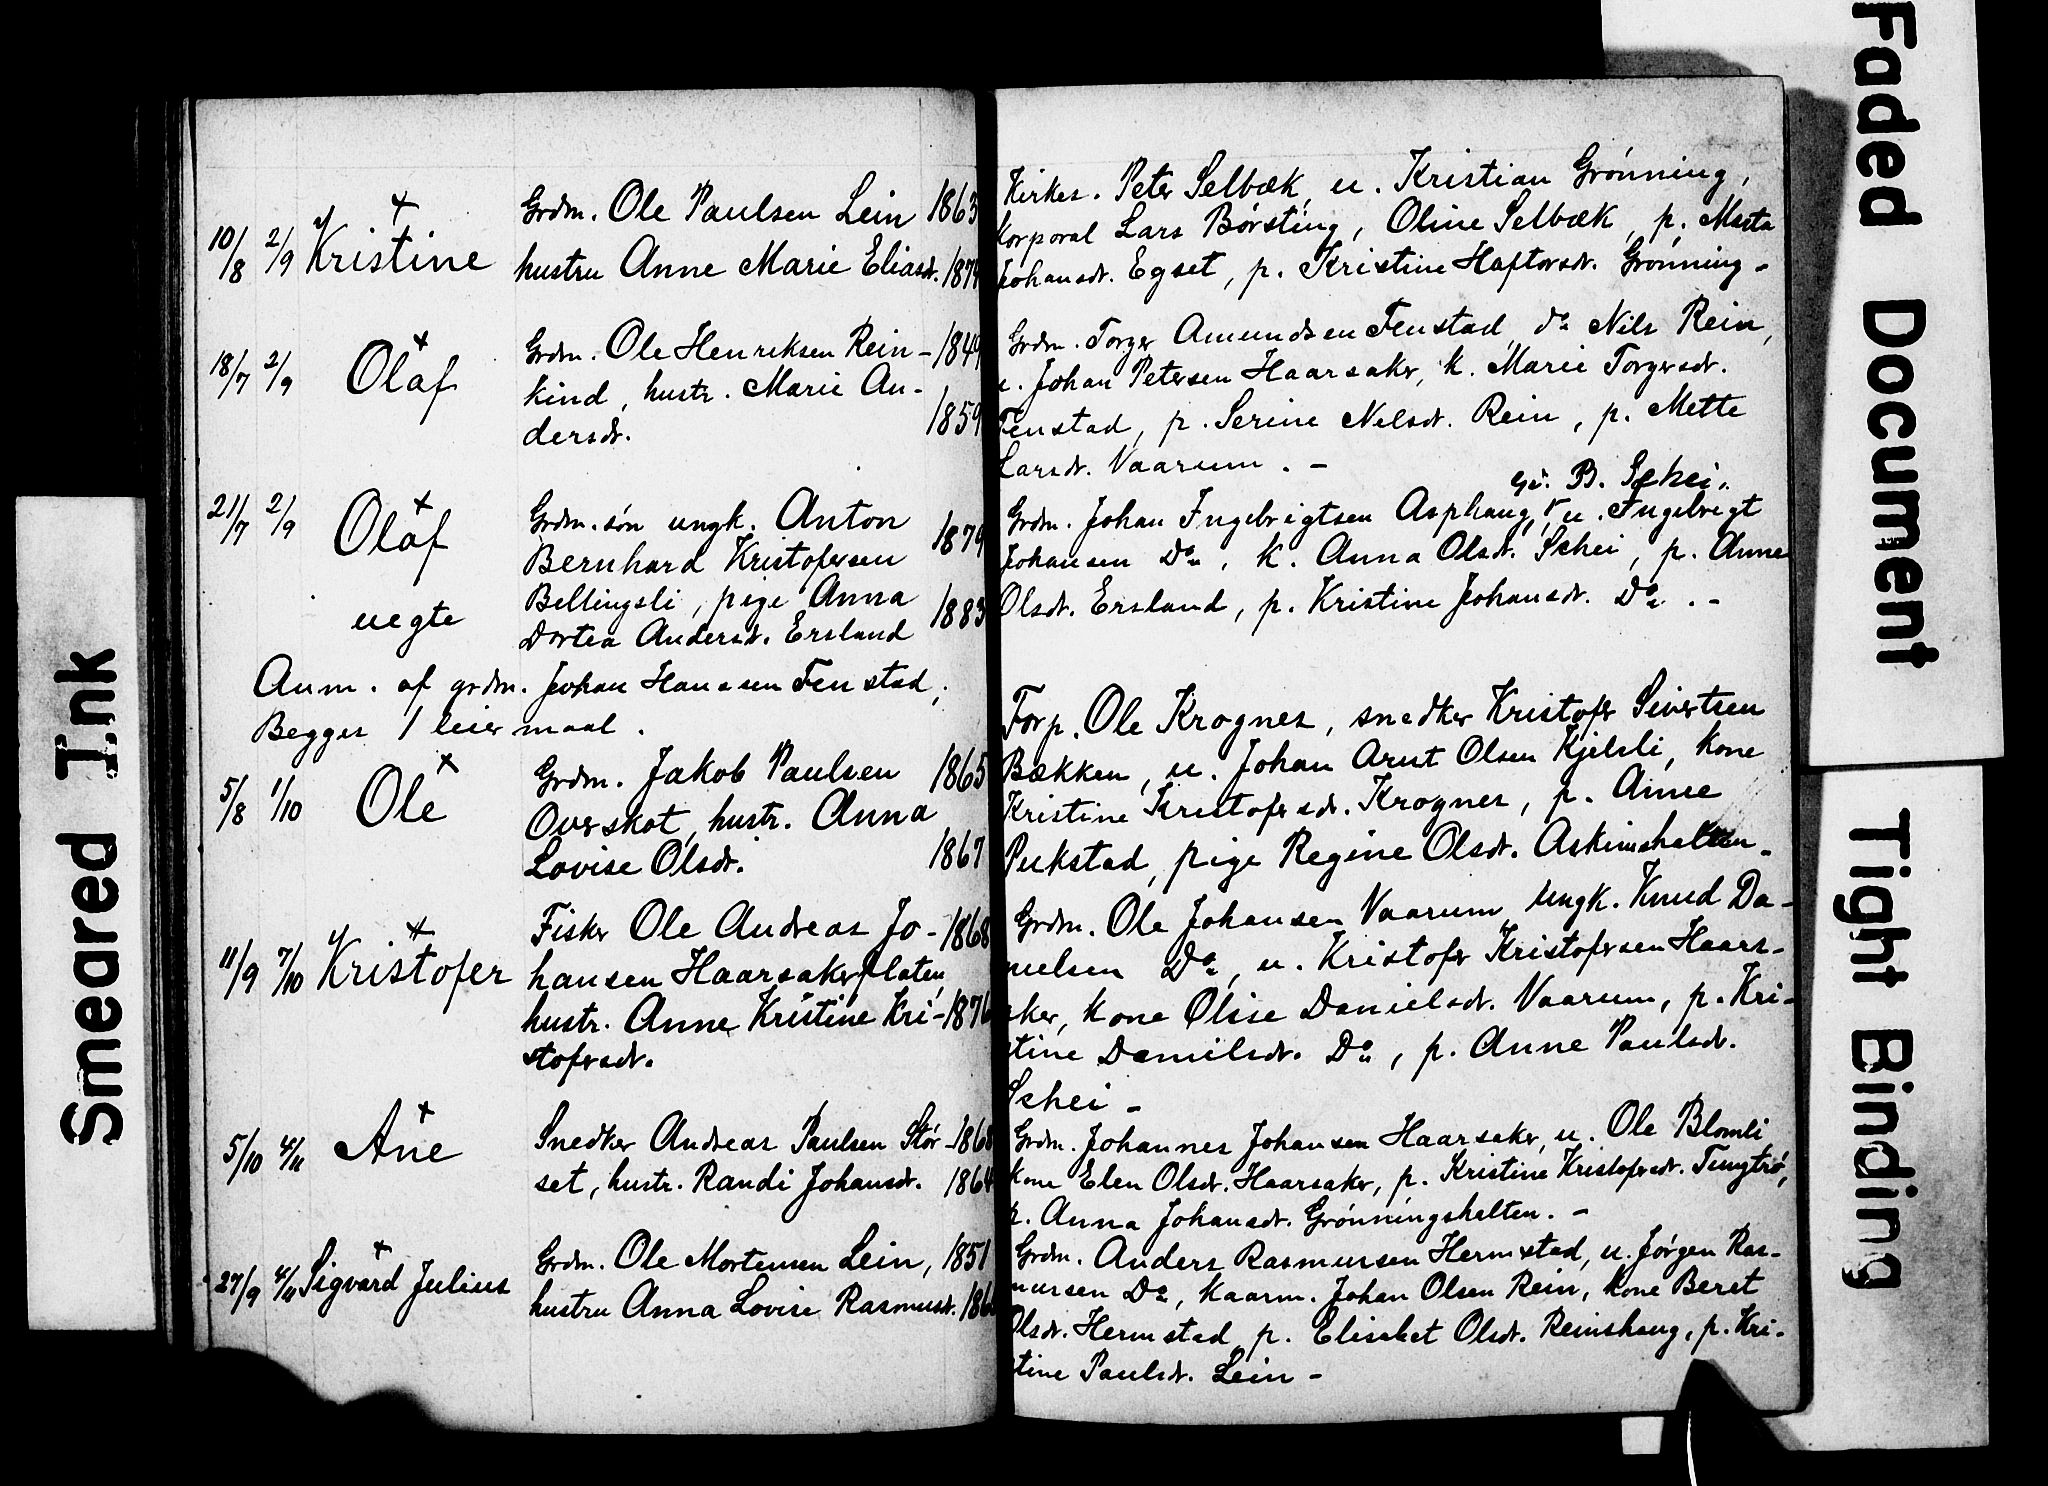 10/8 2/9 Kristine
Grdm. Ole Paulsen Lein 1863
hustru Anne Marie Eliasdt. 187
18/7 2/9 Olaf
Grdm. Ole Henriksen Rein- 1849
kind, hustr. Marie An-
dersdt. 1859
21/7 2/9 Olaf
uegte
Grdm. søn ungk. Anton
Bernhard Kristofersen 1879
Bellingsli, pige Anna
Dortea Andersdt. Ersland 1883
Anm. af grdm. Johan Hansen Fenstad;
Begges 1 leiermaal.
5/8 1/10 Ole
Grdm. Jakob Paulsen 1865
Overskot, hustr. Anna
Lovise Olsdt. 1867
11/9 7/10 Kristofer
Fisker Ole Andreas Jo- 1868
hansen Haarsakerplaten,
hustr. Anne Kristine Kri- 1876
stofersdt.
5/10 4/11 Ane
Snedker Andreas Paulsen Stør- 186
set, hustr. Randi Johansdt. 1864
27/9 4/11 Sigvard Julius
Grdm. Ole Mortensen Lein, 1851
hustru Anna Lovise Rasmusdt. 186
Kirkes. Peter Selbæk, u. Kristian Grønning,
Korporal Lars Børsting, Oline Selbæk, p. Marta
Johansdt. Egset, p. Kristine Haftorsdt. Grønning -
Grdm. Torger Amundsen Fenstad, do Nils Rein,
u. Johan Petersen Haarsaker, k. Marie Torgersdt.
Fenstad, p. Serine Nelsdt. Rein, p. Mette
Larsdt. Vaarum. -
B. Schei.
Grdm. Johan Ingebrigtsen Asphaug, u. Ingebrigt
Johansen Do, k. Anna Olsdt. Schei, p. Anne
Olsdt. Ersland, p. Kristine Johansdt. Do. -
Forp. Ole Krognes, snedker Kristofer Sivertsen
Bækken, u. Johan Arnt Olsen Kjelsli, kone
Kristine Kristofersdt. Krognes, p. Anne
Pukstad, pige Regine Olsdt. Askimshalten.
Grdm. Ole Johansen Vaarum, Ungk. Knud Da-
nielsen Do, u. Kristofer Kristofersen Haars-
aker, kone Olise Danielsdt. Vaarum, p. Kri-
stine Danielsdt. Do, p. Anne Paulsdt.
Schei -
Grdm. Johannes Johansen Haarsaker, u. Ole Blomli
kone Elen Olsdt. Haarsaker, p. Kristine Kristofersdt. Tungtrø,
p. Anna Johansdt. Grønningshalten. -
Grdm. Anders Rasmussen Hermstad, u. Jørgen Ras-
mussen Do, kaarm. Johan Olsen Rein, kone Beret
Olsdt. Hermstad, p. Elisabet Olsdt. Reinshaug, p. Kri-
stine Paulsdt. Lein -
Smeared Ink
Faded Document
Tight Binding